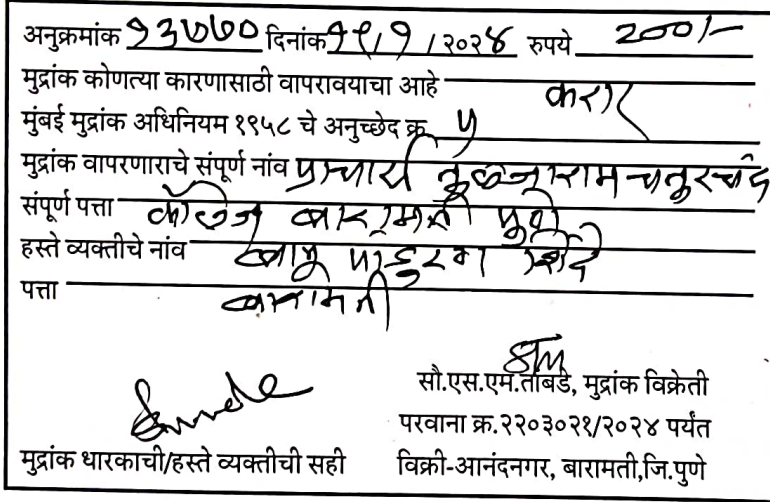 अनुक्रमांक १३७७० दिनांक १९/१/२०२४ रुपये 200/-
मुद्रांक कोणत्या कारणासाठी वापरावयाचा आहे करार
मुंबई मुद्रांक अधिनियम १९५८ चे अनुच्छेद क्र. ५
मुद्रांक वापरणाराचे संपूर्ण नांव प्राचार्य तुळजाराम चतुरचंद
संपूर्ण पत्ता कॉलेज बारामती पुणे
हस्ते व्यक्तीचे नांव बापू पांडुरंग शिंदे
पत्ता बारामती
सौ.एस.एम.तांबडे, मुद्रांक विक्रेती
परवाना क्र.२२०३०२१/२०२४ पर्यंत
मुद्रांक धारकाची/हस्ते व्यक्तीची सही विक्री-आनंदनगर, बारामती,जि.पुणे